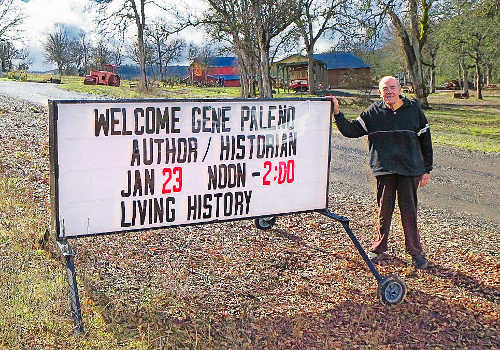 WELCOME GENE PALENO
AUTHOR / HISTORIAN
JAN 23 NOON - 2:00
LIVING HISTORY